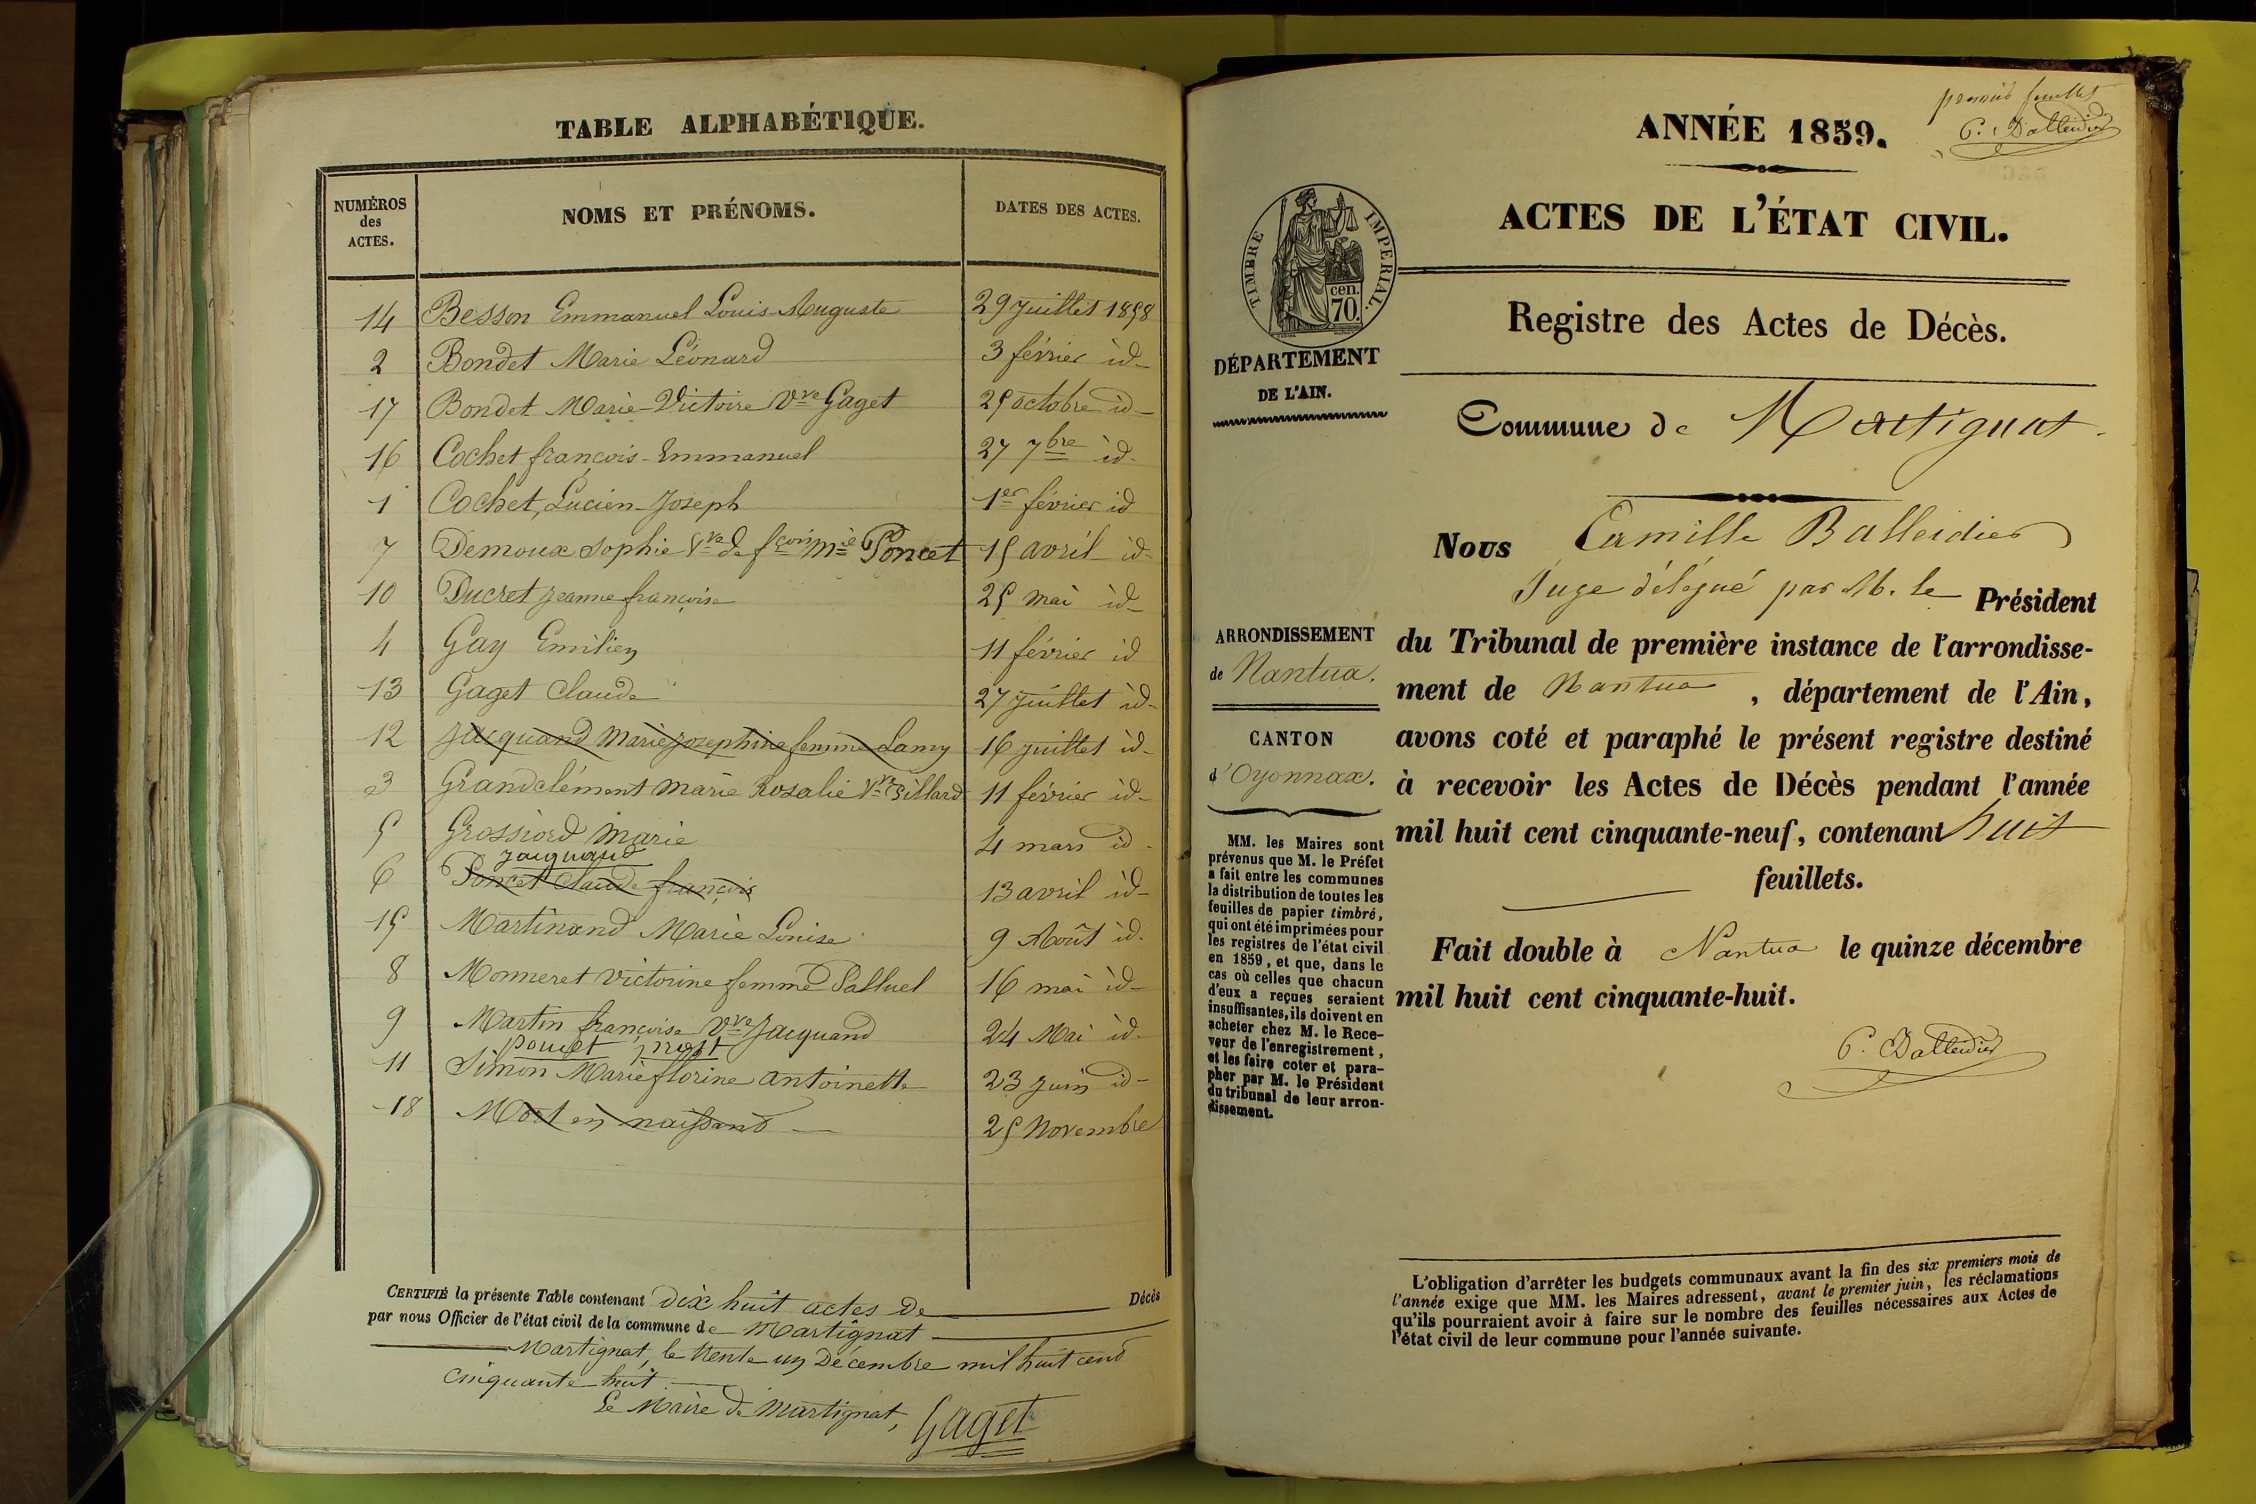 TABLE ALPHABÉTIQUE.
NUMÉROS des ACTES.
NOMS ET PRÉNOMS.
DATES DES ACTES.
14 Besson Emmanuel Louis-Auguste 29 Juillet 1858
2 Bondet Marie Léonard 3 février id
17 Bondet Marie-Victoire Vve Gaget 25 octobre id
16 Cochet françois-Emmanuel 27 7bre id
1 Cochet, Lucien-Joseph 1er février id
7 Demoux Sophie Vve de fçois Mie Poncet 15 avril id
10 Ducret jeanne françoise 25 mai id
4 Gay Emilien 11 février id
13 Gaget Claude 27 juillet id
12 Jacquand Marie Josephine femme Lamy 16 juillet id
3 Grandclément Marie Rosalie Vve Sillard 11 février id
5 Grossiord Marie 4 mars id
Jacquand
6 Poncet Claude françois 13 avril id
15 Martinand Marie Louise 9 Août id
8 Monneret victorine femme Palluel 16 mai id
9 Martin françoise Vve Jacquand 24 Mai id
poncet
11 Simon Marie florine antoinette 23 juin id
18 Mort en naissant 25 Novembre
CERTIFIÉ la présente Table contenant Dix huit actes de Décès
par nous Officier de l'état civil de la commune de Martignat
Martignat, le trente un Décembre mil huit cent
cinquante huit.
Le Maire de Martignat,
Gaget
premier feuillet
C. Balleidier
ANNÉE 1859.
ACTES DE L'ÉTAT CIVIL.
TIMBRE IMPÉRIAL.
cen.
70.
Registre des Actes de Décès.
DÉPARTEMENT
DE L'AIN.
Commune de Martignat
Nous Camille Balleidier
Juge délégué par M. le Président
du Tribunal de première instance de l'arrondisse-
ment de Nantua, département de l'Ain,
avons coté et paraphé le présent registre destiné
à recevoir les Actes de Décès pendant l'année
mil huit cent cinquante-neuf, contenant huit
feuillets.
Fait double à Nantua le quinze décembre
mil huit cent cinquante-huit.
C. Balleidier
ARRONDISSEMENT
de Nantua.
CANTON
d'Oyonnax.
MM. les Maires sont
prévenus que M. le Préfet
a fait entre les communes
la distribution de toutes les
feuilles de papier timbré,
qui ont été imprimées pour
les registres de l'état civil
en 1859, et que, dans le
cas où celles que chacun
d'eux a reçues seraient
insuffisantes, ils doivent en
acheter chez M. le Rece-
veur de l'enregistrement,
et les faire coter et para-
pher par M. le Président
du tribunal de leur arron-
dissement.
L'obligation d'arrêter les budgets communaux avant la fin des six premiers mois de
l'année exige que MM. les Maires adressent, avant le premier juin, les réclamations
qu'ils pourraient avoir à faire sur le nombre des feuilles nécessaires aux Actes de
l'état civil de leur commune pour l'année suivante.